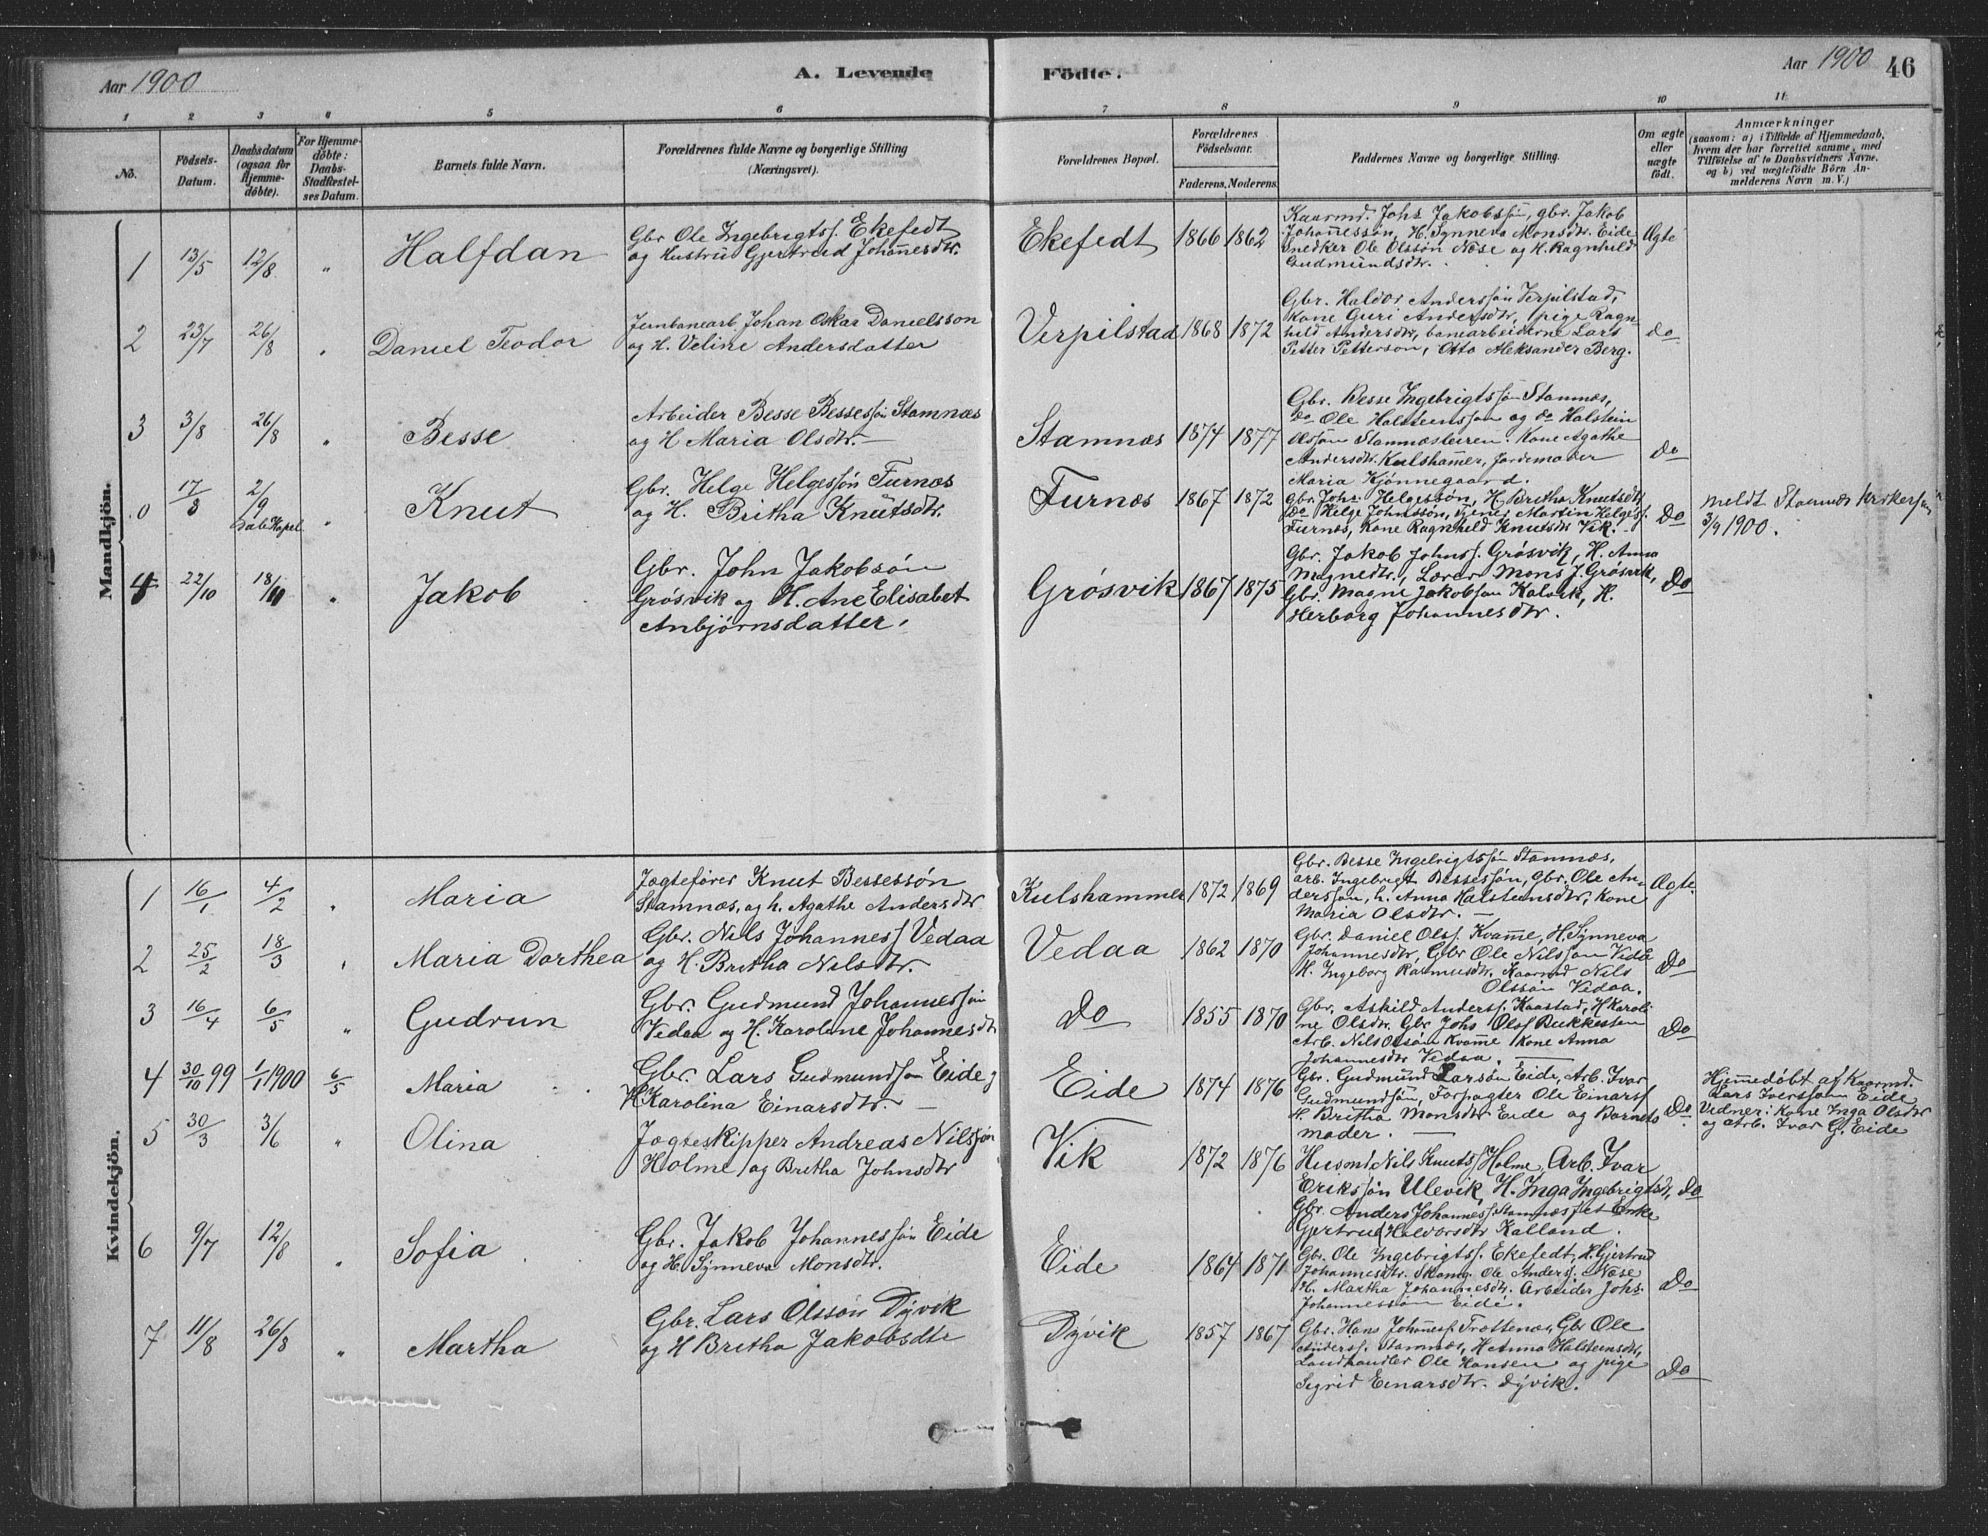 Aar 1900
A. Levende
Födte.
Aar 1900
46
1 2 3 4 5 6 7 8 9 10 11
No.
Födsels-
Datum.
Daabsdatum
(ogsaa for
Hjemme-
döbte).
For Hjemme-
döbte:
Daabs-
Stadfæstel-
ses Datum.
Barnets fulde Navn.
Forældrenes fulde Navne og borgerlige Stilling
(Næringsvei).
Forældrenes Bopæl.
Forældrenes
Födselsaar.
Faderens. Moderens.
Faddernes Navne og borgerlige Stilling.
Om ægte
eller
uægte
födt.
Anmærkninger
(saasom: a) i Tilfælde af Hjemmedaab,
hvem der har forrettet samme, med
Tilföielse af to Daabsvidners Navne,
og b) ved uægtefödte Börn An-
melderens Navn m. V.)
Mandkjön.
1 13/5 12/8 " Halfdan
Gbr Ole Ingebrigtss. Ekefedt
og Hustru Gjertrud Johannesdtr.
Ekefedt 1866 1862
Kaarmd. Johs Jakobssön, gbr. Jakob
Johannessön, H. Synneva Monsdtr. Eide
Snedker Ole Olssön Næse og H. Ragnhild
Gudmundsdtr.
Ægte
2 23/7 26/8 " Daniel Teodor
Jernbanearb. Johan Oskar Danielsson
og H. Veline Andersdatter
Verpilstad 1868 1872
Gbr. Haldor Anderssön Verpilstad,
Kone Guri Andersdtr, pige Ragn-
hild Andersdtr, banearbeiderne Lars
Petter Petterson, Otto Aleksander Berg.
do
3 3/8 26/8 " Besse
Arbeider Besse Bessessön Stamnæs
og H Maria Olsdtr. —
Stamnæs 1874 1877
Gbr. Besse Ingebrigtssön Stamnæs,
do Ole Halsteinssön og do Halstein
Olssön Stamnæsleiren. Kone Agathe
Andersdtr. Kulshamer, Jordemoder
Maria Kjønnegaard.
Do
0 17/3 2/9 " Knut
Gbr. Helge Helgessön Furnæs
og H. Britha Knutsdtr.
Furnæs 1867 1872
Gbr. Johs. Helgessön, H. Britha Knutsdtr
Do Helge Johnssön, tjener Martin Helges.
Furnæs, Kone Ragnhild Knutsdtr Vik.
Do
meldt Stamnæs
3/9 1900.
4 22/10 18/11 " Jakob
Gbr. John Jakobsön
Grósvik og H. Ane Elisabet
Anbjørnsdatter.
Grósvik 1867 1875
Gbr. Jakob Johnss. Grósvik, H. Anna
Magnedtr., Lærer Mons J. Grósvik,
Gbr. Magne Jakobsön Kalvik, H.
Herborg Johannesdtr.
Do
Kvindekjön.
1 16/1 4/2 " Maria
Jægtefører Knut Bessessön
Stamnæs, og h. Agathe Andersdtr
Kulshammer 1872 1869
Gbr. Besse Ingebrigtssön Stamnæs,
arb. Ingebrigt Bessessön, gbr. Ole An-
derssön, h. Anna Halsteinsdtr, Kone
Maria Olsdtr. —
Ægte.
2 25/2 18/3 " Maria Dorthea
Gbr. Nils Johanness Vedaa
og H. Britha Nilsdtr.
Vedaa 1862 1870
Gbr. Daniel Olss. Kvamme, H. Synneva
Johannesdtr, Gbr Ole Nilssön Vedaa
H. Ingeborg Rasmusdtr. Kaarmd Nils
Olssön Vedaa.
Do
3 16/4 6/5 " Gudrun
Gbr. Gudmund Johannessön
Vedaa og H. Karoline Johannesdtr
do 1855 1870
Gbr. Askild Anderss. Kaastad, H Karoli-
ne Olsdtr. Gbr Johs Olss Bukkesten
Arb. Nils Olssön Kvamme Kone Anna
Johannesdtr Vedaa. —
Do
4 30/10 99 1/1 1900 6/5 Maria
Gbr. Lars Gudmundssön Eide og
H Karolina Einarsdtr. —
Eide 1874 1876
Gbr. Gudmund Larssön Eide, Arb. Ivar
Gudmundsön, Forpagter Ole Einarss
H. Britha Monsdtr Eide og Barnets
moder. —
Do.
Hjemmedøbt af Kaarmd.
Lars Iverssön Eide
Vidner: Kone Inga Olsdtr
og Arb. Ivar G. Eide
5 30/3 3/6 " Olina
Jægteskipper Andreas Nilssön
Holme og Britha Johnsdtr
Vik 1872 1876
Husmd Nils Knutss Holme, Arb. Ivar
Erikssön Ulevik, H. Inga Ingebrigtsd,
Gbr. Anders Johanness. Stamnæs, Enke
Gjertrud Halvorsdtr Kalland.
Do
6 9/7 12/8 " Sofia
Gbr. Jakob Johannessön Eide
og H. Synneva Monsdtr.
Eide 1864 1871
Gbr. Ole Ingebrigtss. Ekefedt, H. Gjertrud
Johannesdtr. Skomg. Ole Anderss. Næse
H. Martha Johannesdtr. Arbeider Johs.
Johannessön Eide.
Do
7 11/8 26/8 " Martha
Gbr. Lars Olsson Dyvik
og H Britha Jakobsdtr
Dyvik 1857 1867
Gbr. Hans Johannes. Trættenæs, Gbr Ole
Anderss. Stamnæs, H Anna Halsteinsdtr,
Landhandler Ole Hansen og pige
Sigrid Einarsdtr. Dyvik.
Do